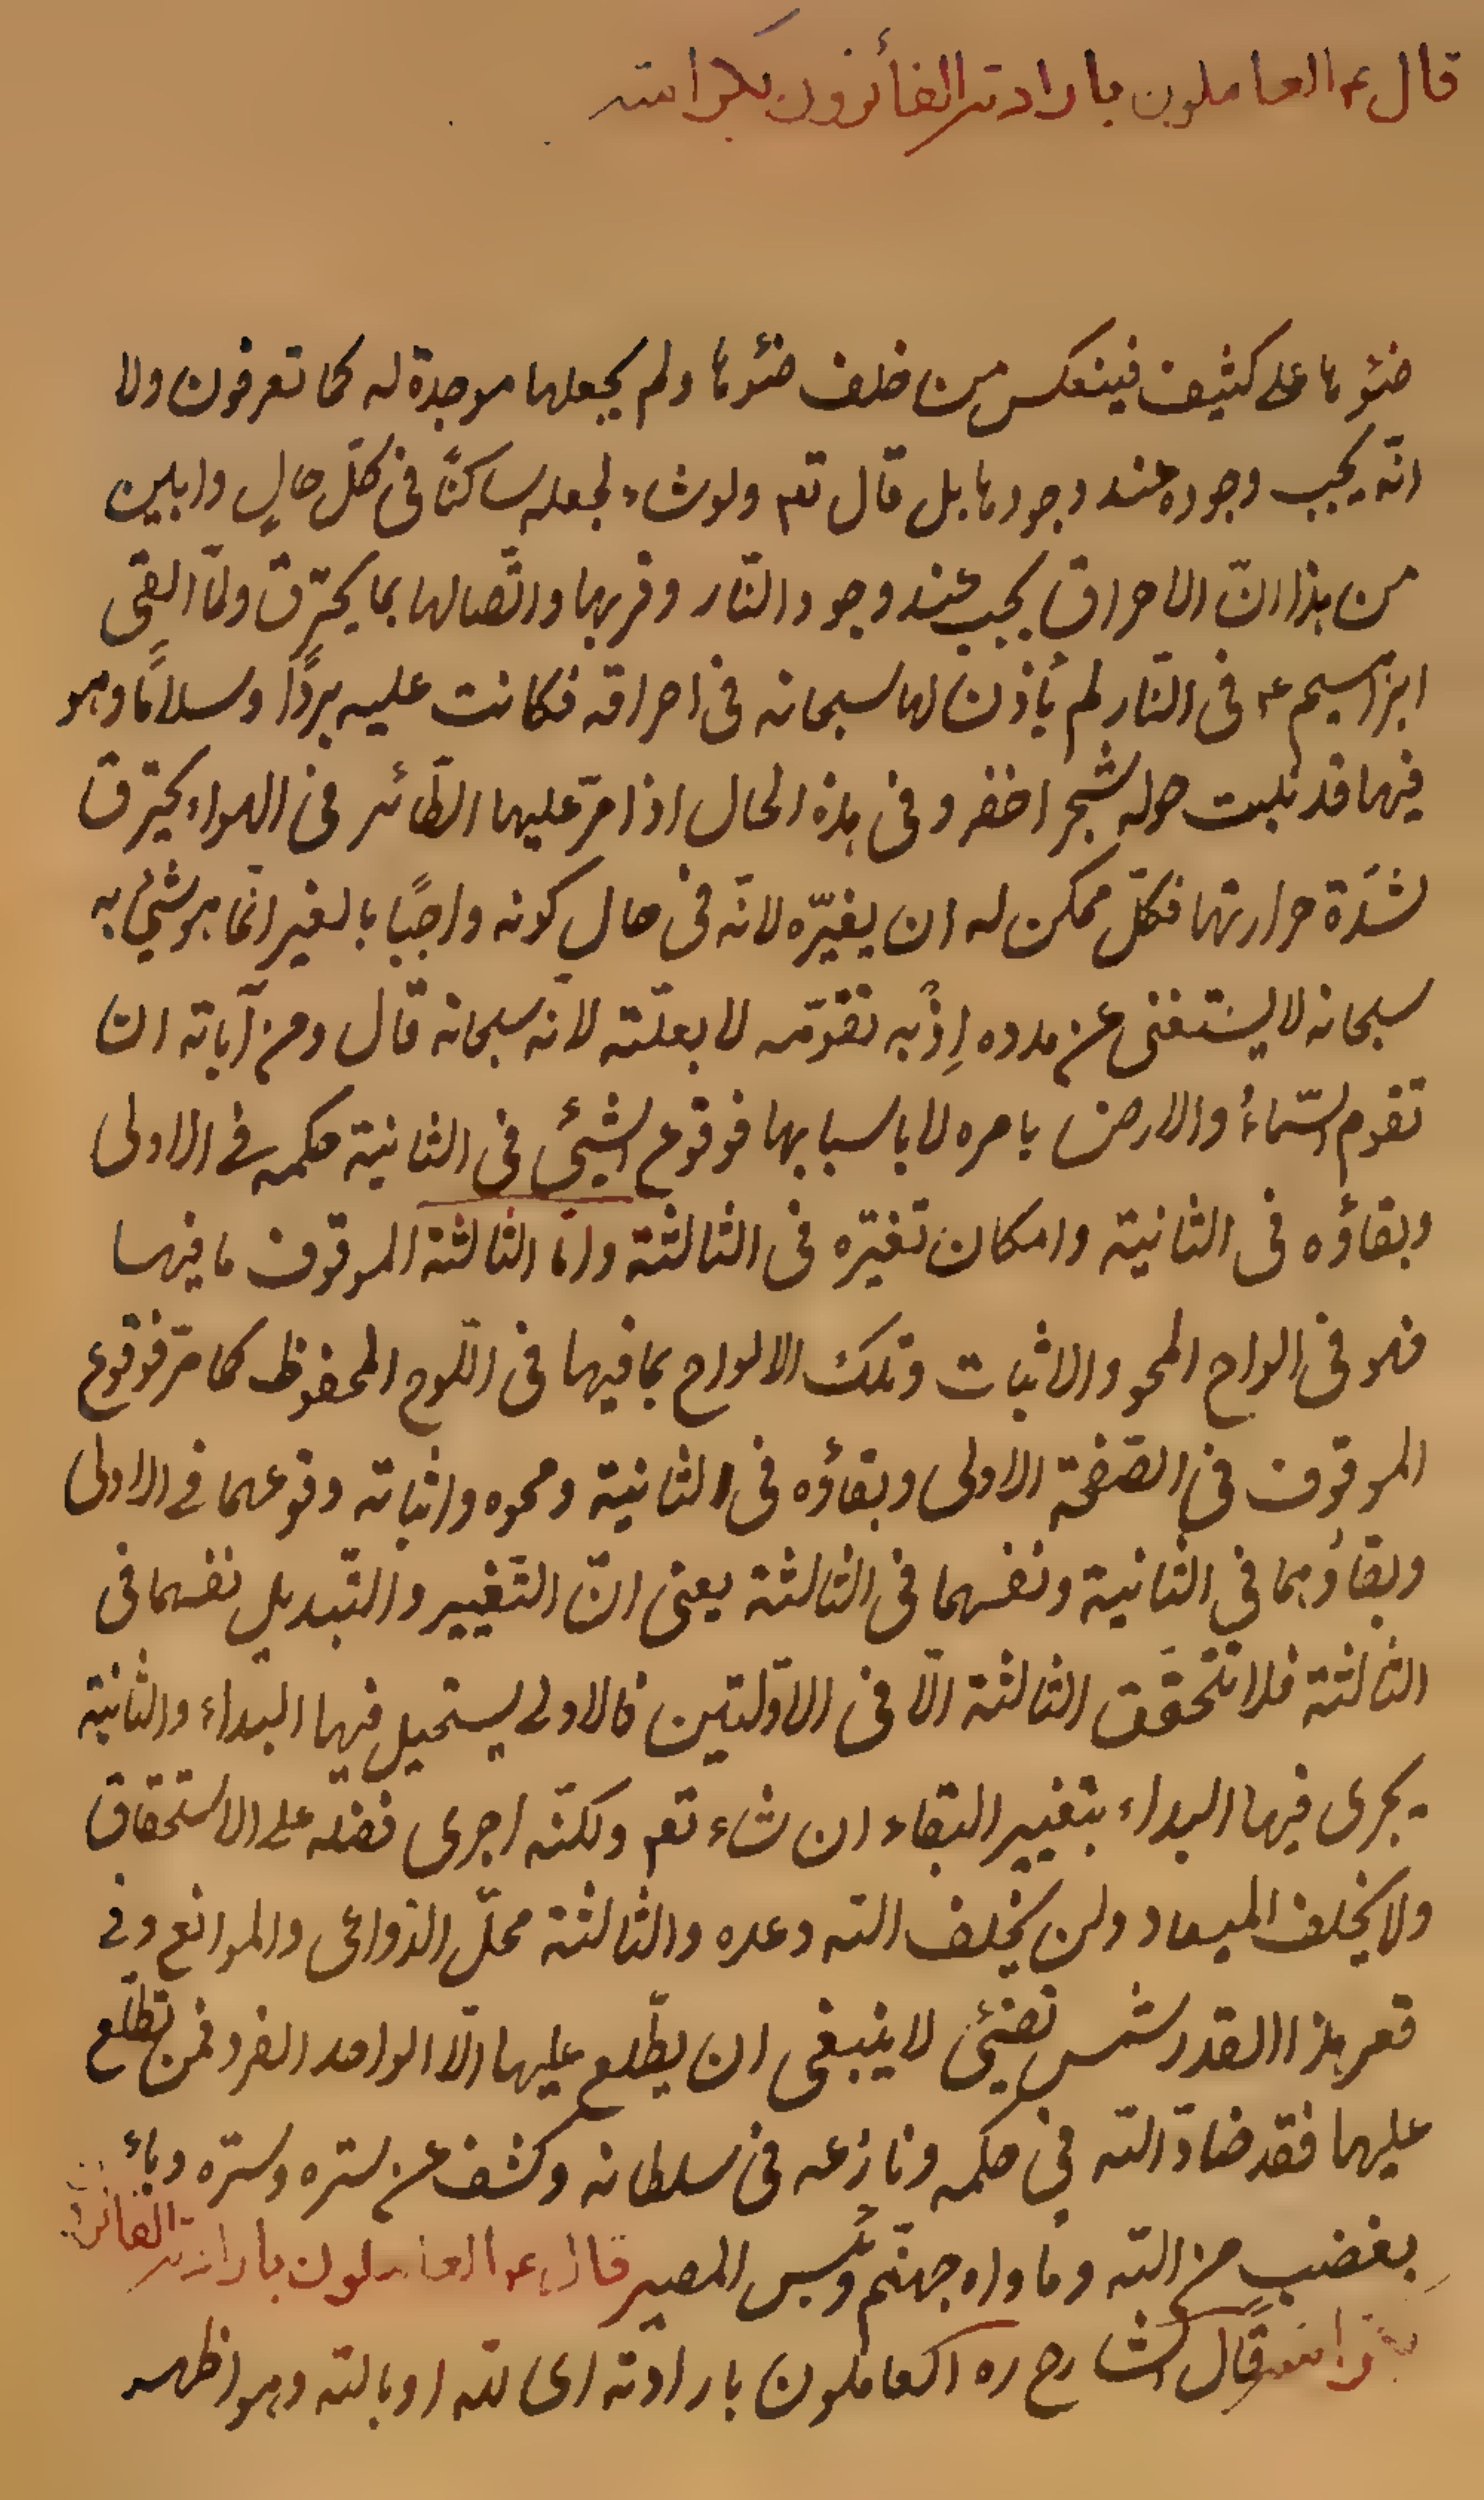 قال ع العاملون بارادته الفائزون بكرامته
ضوئها على كثيف فينعكس من خلف ضوئها ولم يجعلها موجدة له كما تعرفون ولا
انّه يجب وجوده عند وجودها بل قال تعم ولو شاء لجعله ساكنًا فى كلّ حالٍ وابلين
من هذا انّ الاحراق يجب عند وجود النّار وقربها واتّصالها بما يحترق ولمّا القى
ابراهيم ع فى النّار لم يأذن لها سبحانه فى احراقه فكانت عليه بردًا وسلامًا وهو
فيها قد نبتت حوله شجر اخضر وفى هذه الحال اذا مرّ عليها الطّائر فى الهواء يحترق
لشدّة حرارتها فكلّ ممكن له ان يغيّره لانّه فى حال كونه واجبًا بالغير انّما هو شئ به
سبحانه لا يستغنى عن مدده اِذْ به تقوّمه لا بعلّته لانّه سبحانه قال ومن آياته ان
تقوم السّماءُ والارض بامره لا باسبابها فوقوع الشئ فى الثانية حكمه فى الاولى
وبقاؤه فى الثانية وامكان تغيّره فى الثالثة وامّا الثالثة الموقوف ما فيها
فهو فى الواح المحو والاثبات وتلك الالواح بما فيها فى اللّوح المحفوظ كما مرّ فوقوع
الموقوف فى الصّفحة الاولى وبقاؤه فى الثانية ومحوه واثباته وقوعهما فى الاولى
وبقاؤهما فى الثانية ونفسهما فى الثالثة يعنى انّ التّغيير والتّبديل نفسهما فى
الثالثة فلا تتحقّق الثالثة الّا فى الاوّلتين فالاولى يستحيل فيها البداء والثانية
يجرى فيها البداء بتغيير البقاء ان شاء تعم ولكنّه اجرى فضله على الاستحقاق
ولا يخلف الميعاد ولن يخلف الله وعده والثالثة محلّ الدّواعى والموانع وفى
قعر هذا القدر شمس تضئ لا ينبغى ان يطّلع عليها الّا الواحد الفرد فمن تطلّع
عليها فقد ضادّ الله فى حكمه ونازعه فى سلطانه وكشف عن ستره وسرّه وباء
بغضبٍ من الله ومأواه جهنّم وبئس المصير قال ع العاملون بارادته الفائزون
بكرامته قال الشارح ره العاملون بارادته اى لله او بالله وهو اظهر